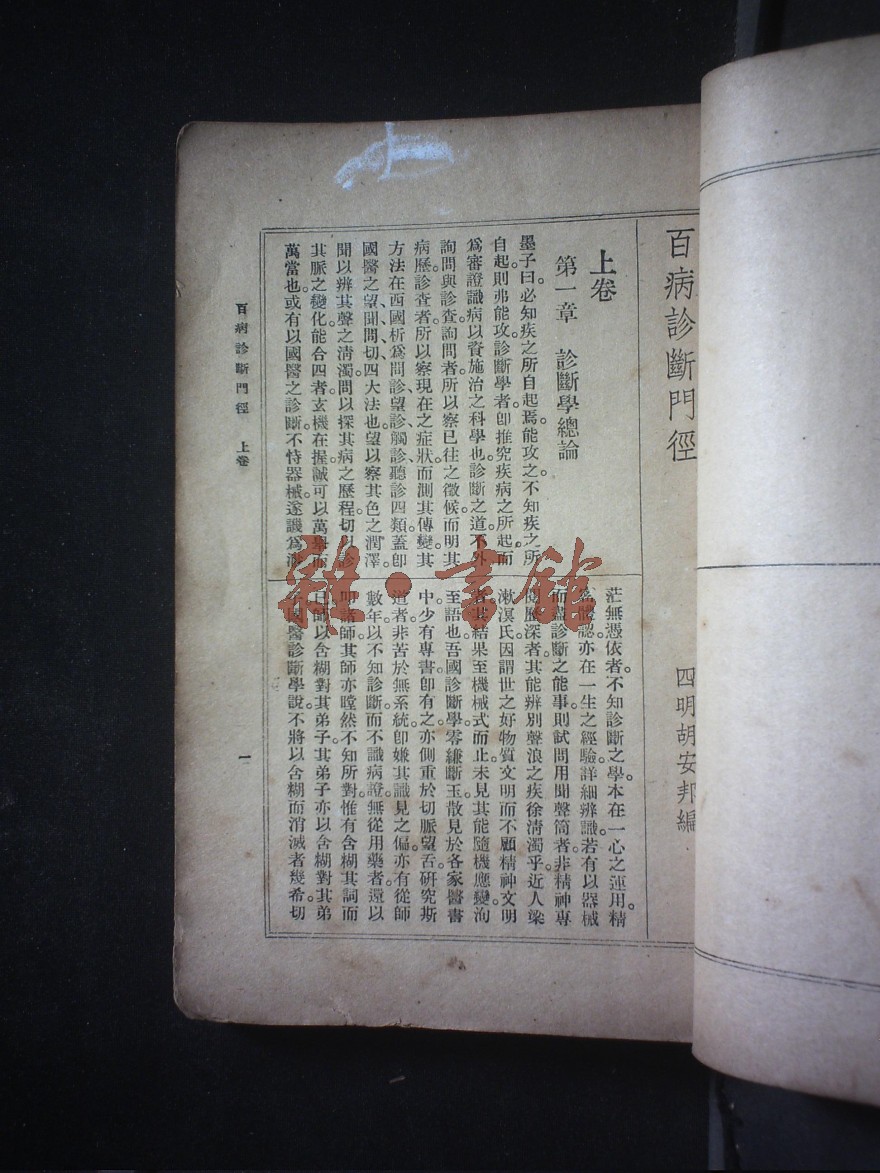 上
百病診斷門徑
四明胡安邦編
上卷
第一章 診斷學總論
墨子曰。必知疾之所自起。焉能攻之。不知疾之所
自起。則弗能攻。診斷學者。卽推究疾病之所起。而
爲審證識病。以資施治之科學也。診斷之道。不外
詢問與診查。詢問者。所以察已往之徵候。而明其
病歷。診查者。所以察現在之症狀。而測其傳變。其
方法在西國析爲問診、望診、觸診、聽診四類。蓋卽
國醫之望、聞、問、切、四大法也。望以察其色之潤澤。
聞以辨其聲之淸濁。問以探其病之歷程。切以診
其脈之變化。能合四者。玄機在握。誠可以萬舉而
萬當也。或有以國醫之診斷。不恃器械。遂譏爲渺
茫無憑依者。不知診斷之學。本在一心之運用。精
體認。亦在一生之經驗。詳細辨識。若有以器械
而盡診斷之能事。則試問用聞聲筒者。非精神專
歷深者。其能辨別聲浪之疾徐淸濁乎。近人梁
漱溟氏。因謂世之好物質文明。而不顧精神文明
者。其結果至機械式而止。未見其能隨機應變。洵
至語也。吾國診斷學。零縑斷玉。散見於各家醫書
中。少有專書。卽有之。亦側重於切脈望舌。硏究斯
道者。非苦於無系統。卽嫌其識見之偏。亦有從師
數年。以不知診斷。而不識病證。無從用藥者。還以
叩諸師。其師亦瞠然不知所對。惟有含糊其詞而
已。師以含糊對其弟子。其弟子亦以含糊對其弟
子。國醫診斷學說。不將以含糊而消滅者幾希。切
百病診斷門徑 上卷
一
雜·書館